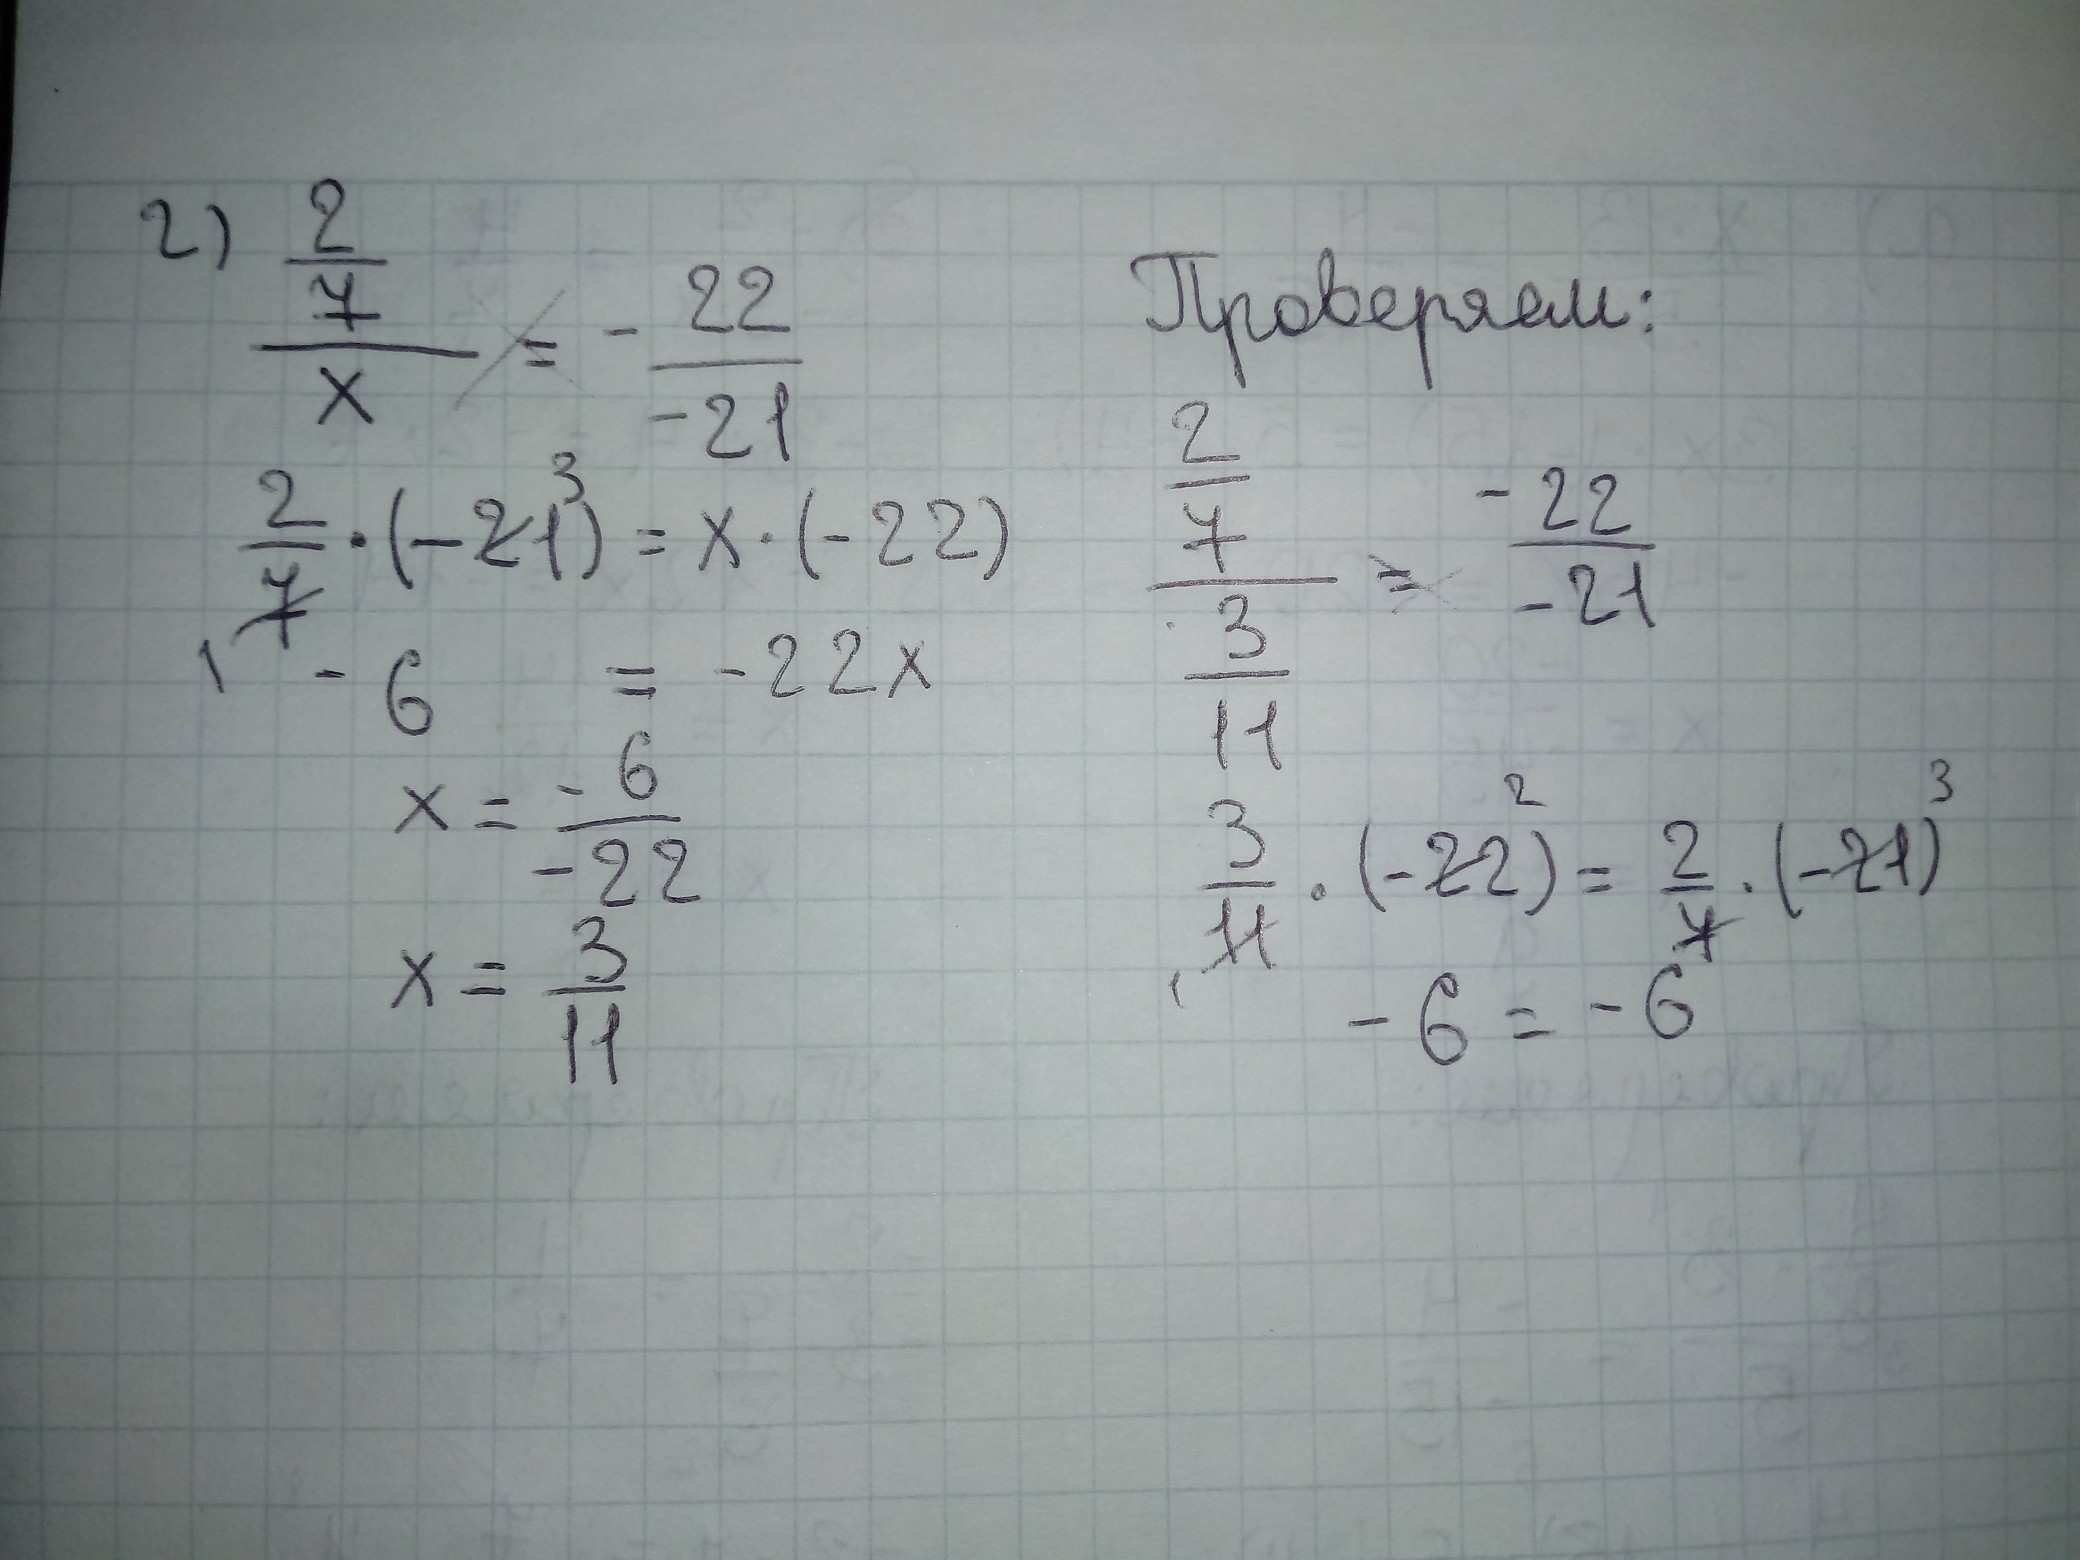 2) 2/7 / x = -22/-21
2/7 · (-21)³ = x · (-22)
1
-6 = -22x
x = -6/-22
x = 3/11
Проверяем:
2/7 / 3/11 = -22/-21
3/11 · (-22)² = 2/7 · (-21)³
1
-6 = -6